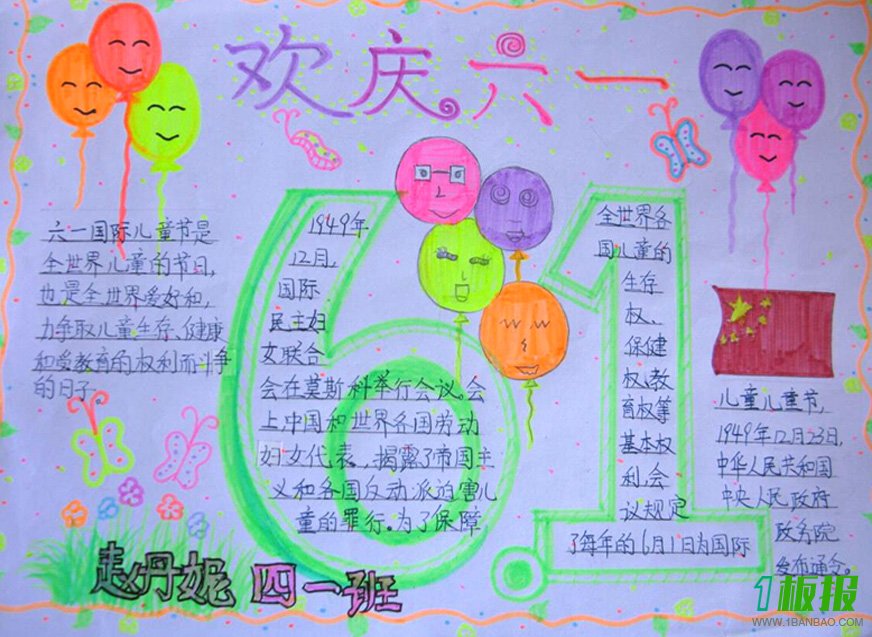 欢庆六一
六一国际儿童节是
全世界儿童的节日,
也是全世界爱好和,
力争取儿童生存、健康
和受教育的权利而斗争
的日子.
1949年
12月,
国际
民主妇
女联合
会在莫斯科举行会议,会
上,中国和世界各国劳动
妇女代表,揭露了帝国主
义和各国反动派迫害儿
童的罪行。为了保障
全世界各
国儿童的
生存
权、
保健
权、教
育权等
基本权
利,会
议规定
了每年的6月1日为国际
儿童儿童节,
1949年12月23日,
中华人民共和国
中央人民政府
政务院
发布通令。
赵丹妮 四一班
1板报
WWW.1BANBAO.COM